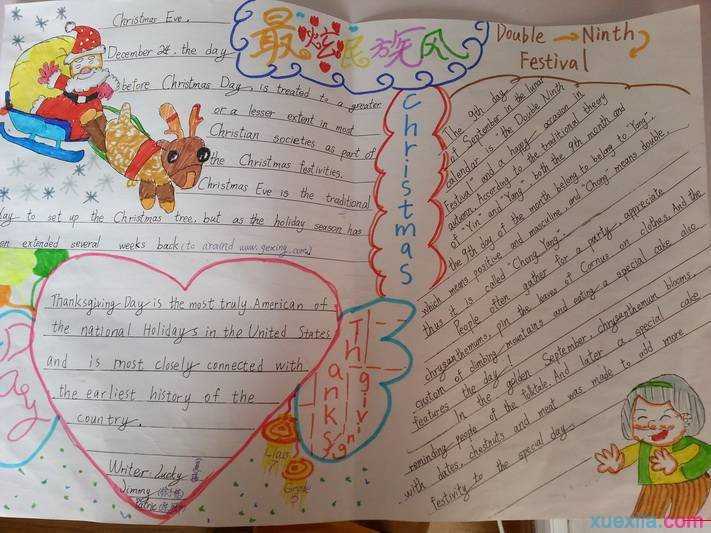 最炫民族风
Christmas Eve.
December 24. the day
before Christmas Day, is treated to a greater
or a lesser extent in most
Christian societies as part of
the Christmas festivities.
Christmas Eve is the traditional
day to set up the Christmas tree, but as the holiday season has
en extended several weeks back (to around www.geking.com)
Christmas
Double → Ninth
Festival
The 9th day
of September in the lunar
calendar is "the Double Ninth
Festival" and a happy occasion in
autumn. According to the traditional theory
of "Yin" and "Yang", both the 9th month and
the 9th day of the month belong to belong to "Yang",
which means positive and masculine, and "Chong" means double
thus it is called "Chong Yang".
People often gather for a party, appreciate
chrysanthemums, pin the leaves of Cornus on clothes. And the
custom of climbing mountains and eating a special cake also
features the day!
In the golden September, chrysanthemum blooms,
reminding people of the folktale. And later a special cake
with dates, chestnuts and meat was made to add more
festivity to the special day.
Thanksgiving Day is the most truly American of
the national Holidays in the United States
and is most closely connected with
the earliest history of the
country.
Writer: Lucky
Jimmy
Thanksgiving
Day
Class
7
Grade
xuexila.com